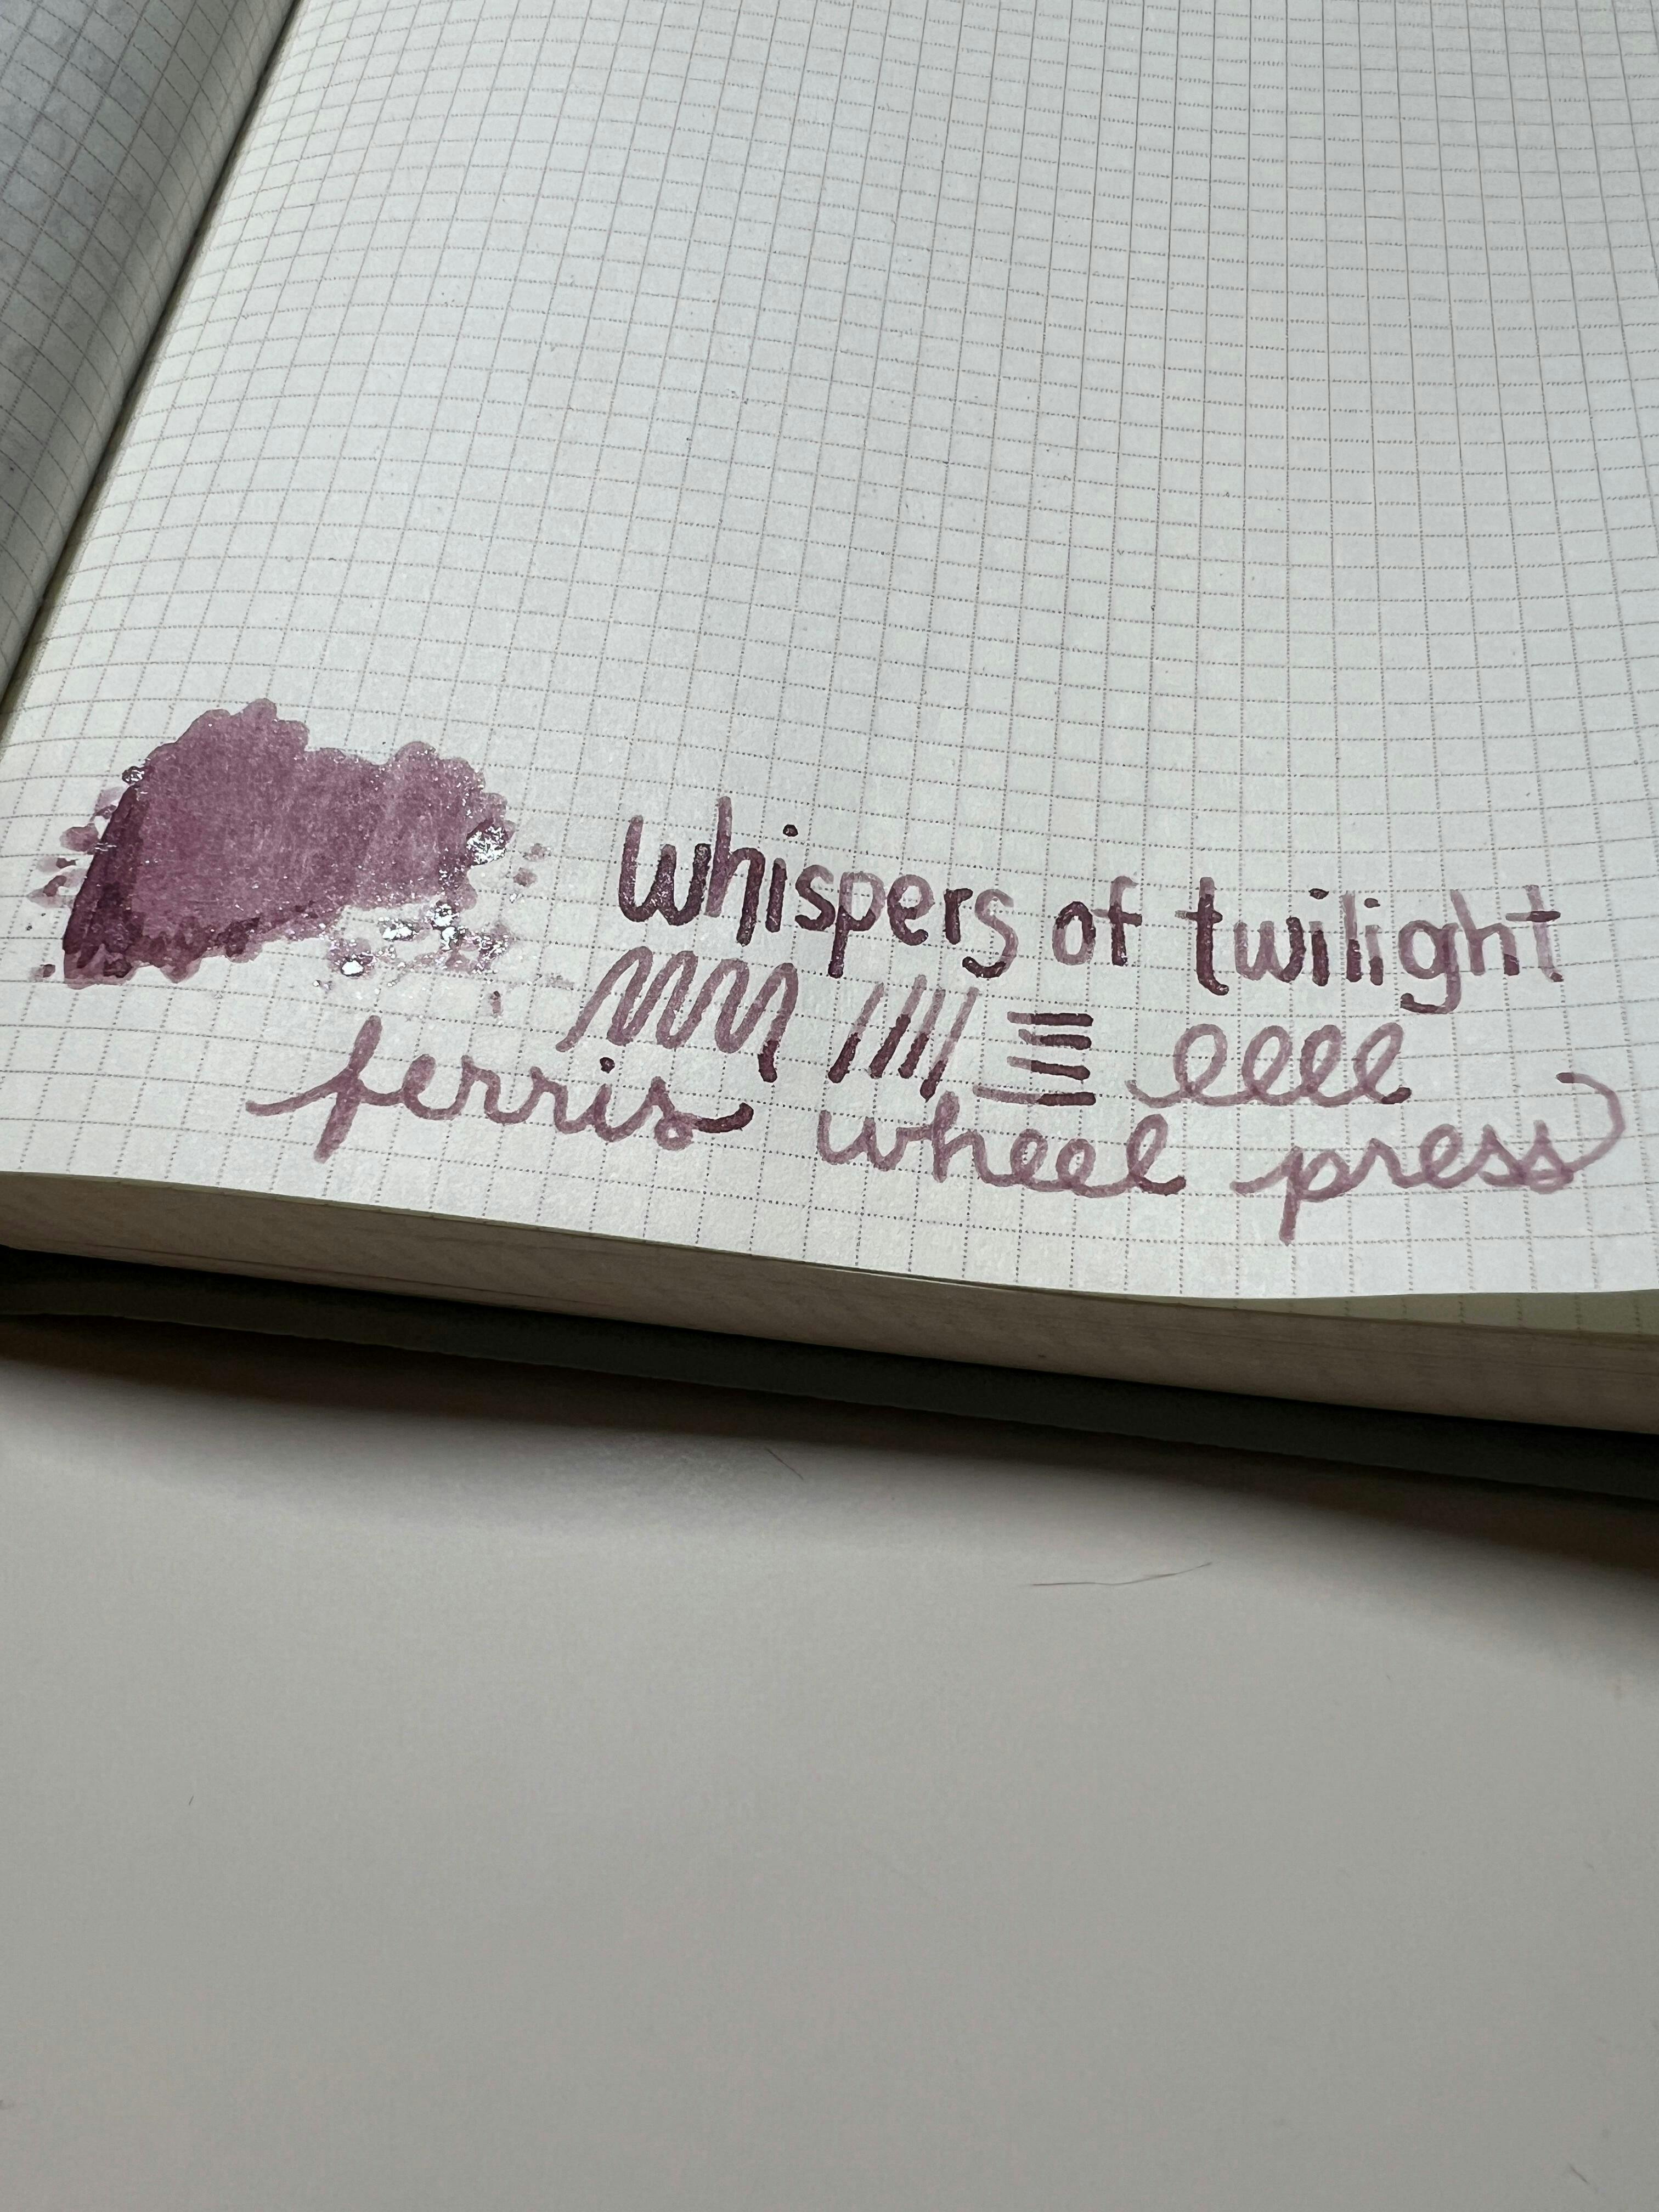 whispers of twilight
llll
ferris wheel press